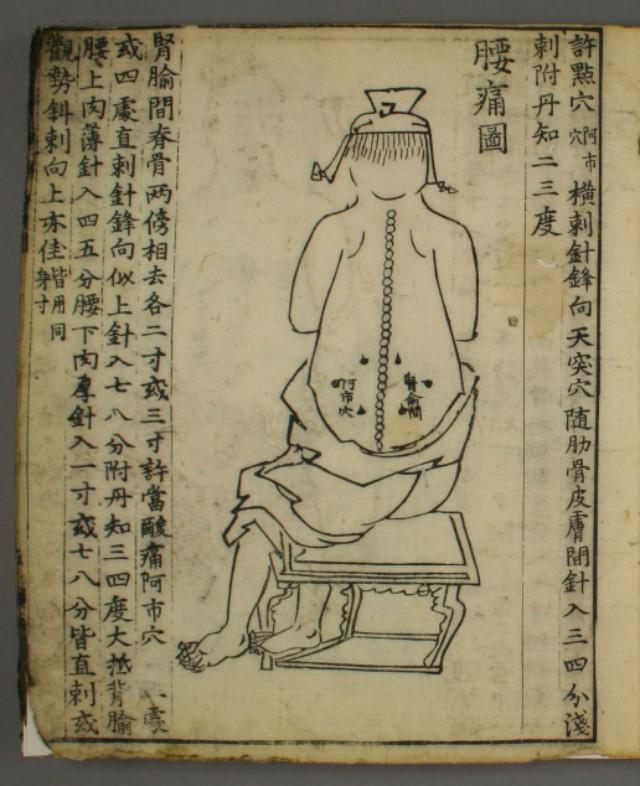 許點穴阿市穴橫刺針鋒向天突穴随肋骨皮膚間針入三四分淺
刺附丹知二三度
腰痛圖
腎腧間
阿市穴
腎腧間脊骨兩傍相去各二寸或三寸許當酸痛阿市穴 八處
或四處直刺針鋒向似上針入七八分附丹知三四度大抵背腧
腰上肉薄針入四五分腰下肉厚針入一寸或七八分皆直刺或
觀勢斜刺向上亦佳皆用同身寸